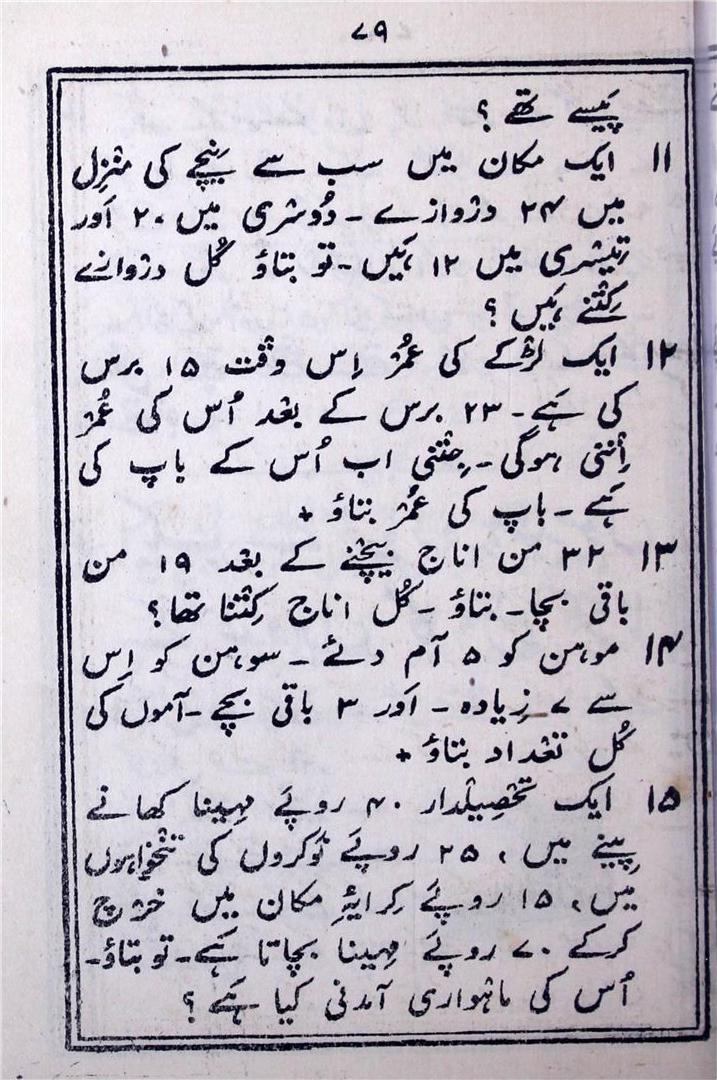 ۷۹
پَیسے تھے ؟
۱۱ ایک مکان میں سب سے نِیچے کی مَنْزِل
میں ۲۴ دَرْوازے ۔ دُوسْری میں ۲۰ اَور
تِیسْری میں ۱۲ ہَیں ۔ تو بتاؤ کُل دَرْوازے
کِتْنے ہَیں ؟
۱۲ ایک لَڑْکے کی عُمْرْ اِس وَقْت ۱۵ برس
کی ہَے ۔ ۲۳ برس کے بَعْد اُس کی عُمْرْ
اِتْنی ہوگی ۔ جِتْنی اب اُس کے باپ کی
ہَے ۔ باپ کی عُمْرْ بتاؤ +
۱۳ ۳۲ من اناج بیچْنے کے بَعْد ۱۹ من
باقی بچا ۔ بتاؤ ۔ کُل اناج کِتْنا تھا ؟
۱۴ موہن کو ۵ آم دئے ۔ سوہن کو اِس
سے ۷ زِیادہ ۔ اَور ۳ باقی بچے ۔ آموں کی
کُل تَعْداد بتاؤ +
۱۵ ایک تَحْصِیلْدار ۴۰ روپَے مہِینا کھانے
پِینے میں ، ۲۵ روپَے نَوکروں کی تَنْخْواہوں
میں ، ۱۵ روپَے کِرایۂِ مکان میں خَرْچ
کرکے ۷۰ روپَے مہِینا بچاتا ہَے ۔ تو بتاؤ ۔
اُس کی ماہْواری آمدنی کیا ہَے ؟